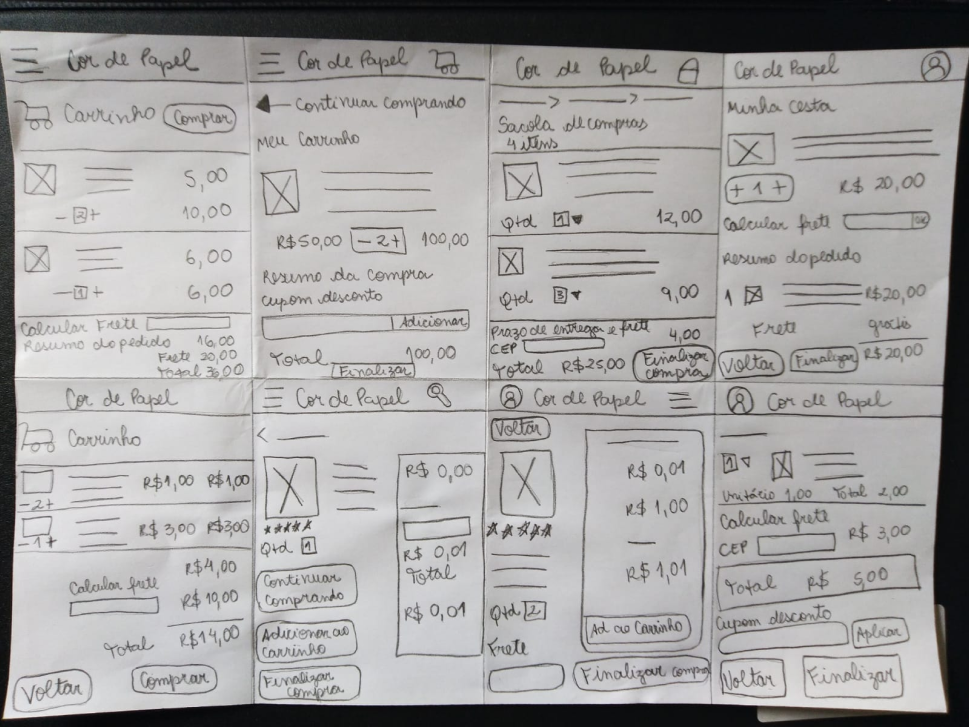 Cor de Papel
Carrinho Comprar
5,00
- 2 + 10,00
6,00
- 1 + 6,00
Calcular Frete
Resumo do pedido 16,00
Frete 20,00
Total 36,00
Cor de Papel
Continuar comprando
Meu Carrinho
R$50,00 - 2 + 100,00
Resumo da compra
Cupom desconto
Adicionar
Total 100,00
Finalizar
Cor de Papel
Sacola de compras
4 itens
Qtd 1 12,00
Qtd 3 9,00
Prazo de entrega e frete
CEP 4,00
Total R$25,00 Finalizar compra
Cor de Papel
Minha cesta
+ 1 + R$ 20,00
Calcular frete OK
Resumo do pedido
1 R$20,00
Frete gratis
Voltar Finalizar R$20,00
Cor de Papel
Carrinho
R$1,00 R$1,00
- 2 +
R$ 3,00 R$3,00
- 1 +
R$4,00
Calcular frete
R$ 10,00
Total R$14,00
Voltar Comprar
Cor de Papel
R$ 0,00
Qtd 1
R$ 0,01
Total
R$ 0,01
Continuar
Comprando
Adicionar ao
carrinho
Finalizar
compra
Cor de Papel
Voltar
R$ 0,01
R$ 1,00
R$ 1,01
Qtd 2
Ad ao Carrinho
Frete
Finalizar compra
Cor de Papel
1
Unitário 1,00 Total 2,00
Calcular frete
CEP R$ 3,00
Total R$ 5,00
Cupom desconto
Aplicar
Voltar Finalizar